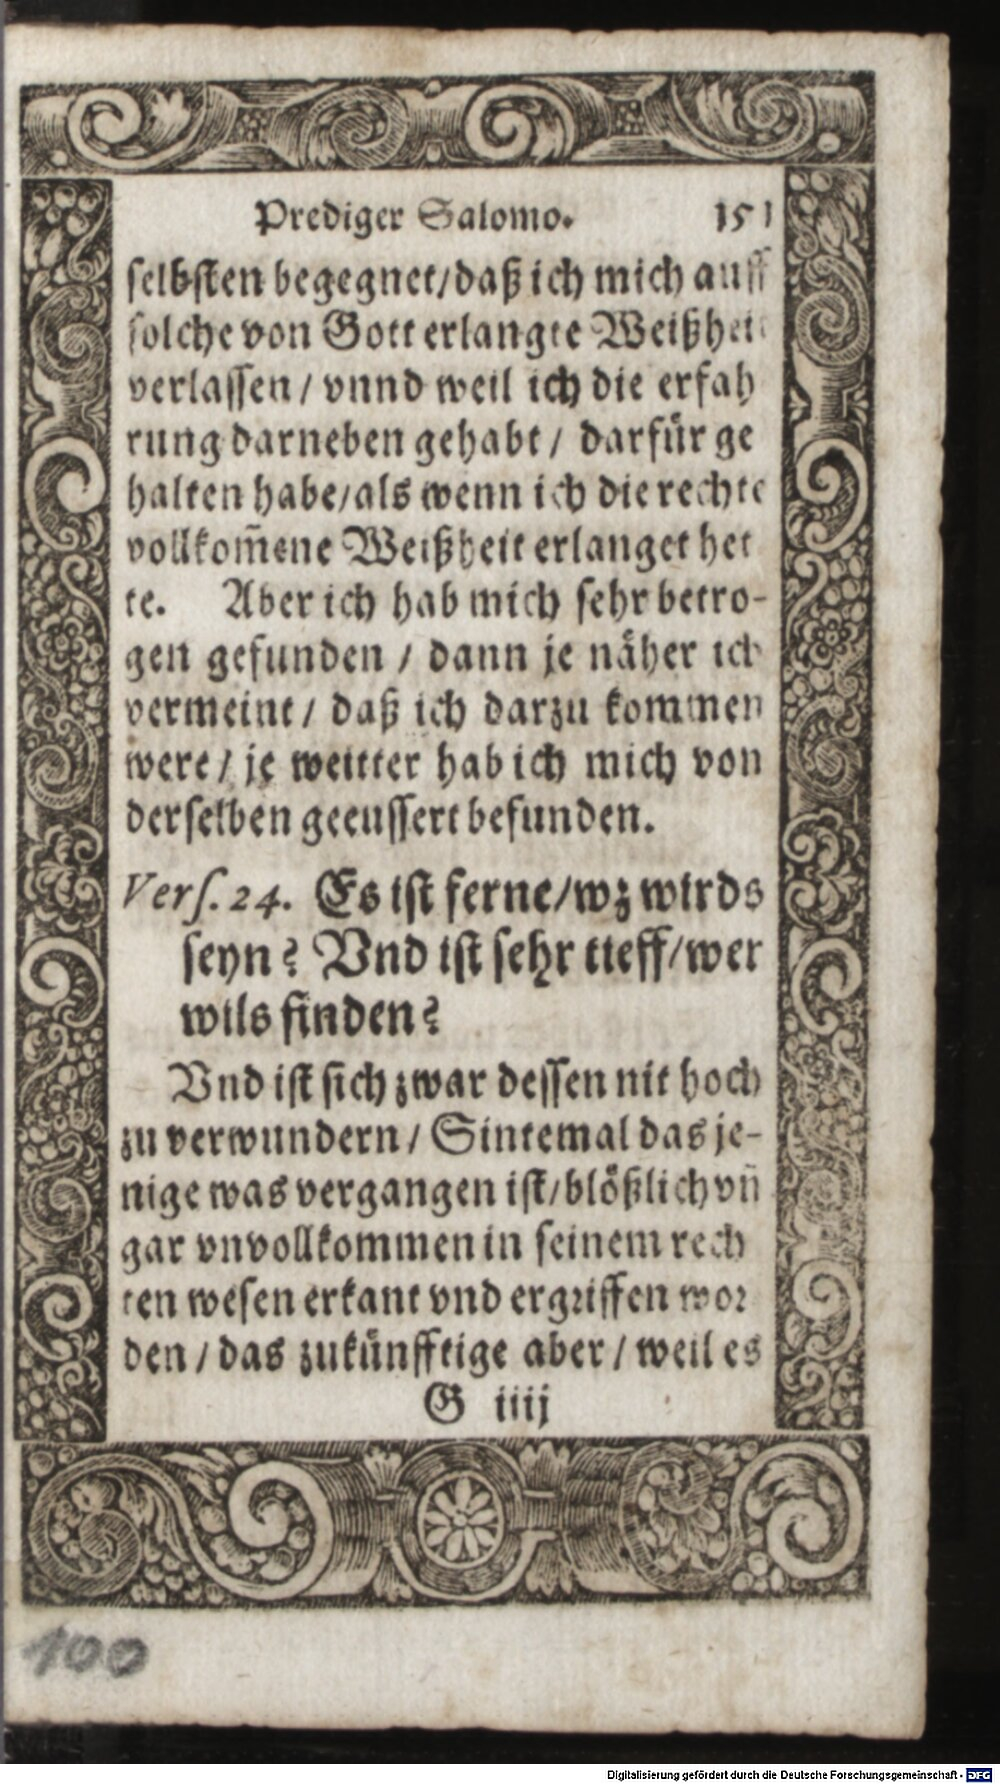 Prediger Salomo. 151
selbsten begegnet/daß ich mich auff
solche von Gott erlangte Weißheit
verlassen / vnnd weil ich die erfah
rung darneben gehabt / darfür ge
halten habe/als wenn ich die rechte
vollkom̄ene Weißheit erlanget het
te. Aber ich hab mich sehr betro-
gen gefunden / dann je näher ich
vermeint / daß ich darzu kommen
were / je weitter hab ich mich von
derselben geeussert befunden.
Vers. 24. Es ist ferne/wz wirds
seyn? Vnd ist sehr tieff/wer
wils finden?
Vnd ist sich zwar dessen nit hoch
zu verwundern / Sintemal das je-
nige was vergangen ist/blößlich vn̄
gar vnvollkommen in seinem rech
ten wesen erkant vnd ergriffen wor
den / das zukünfftige aber / weil es
G iiij
100
Digitalisierung gefördert durch die Deutsche Forschungsgemeinschaft - DFG